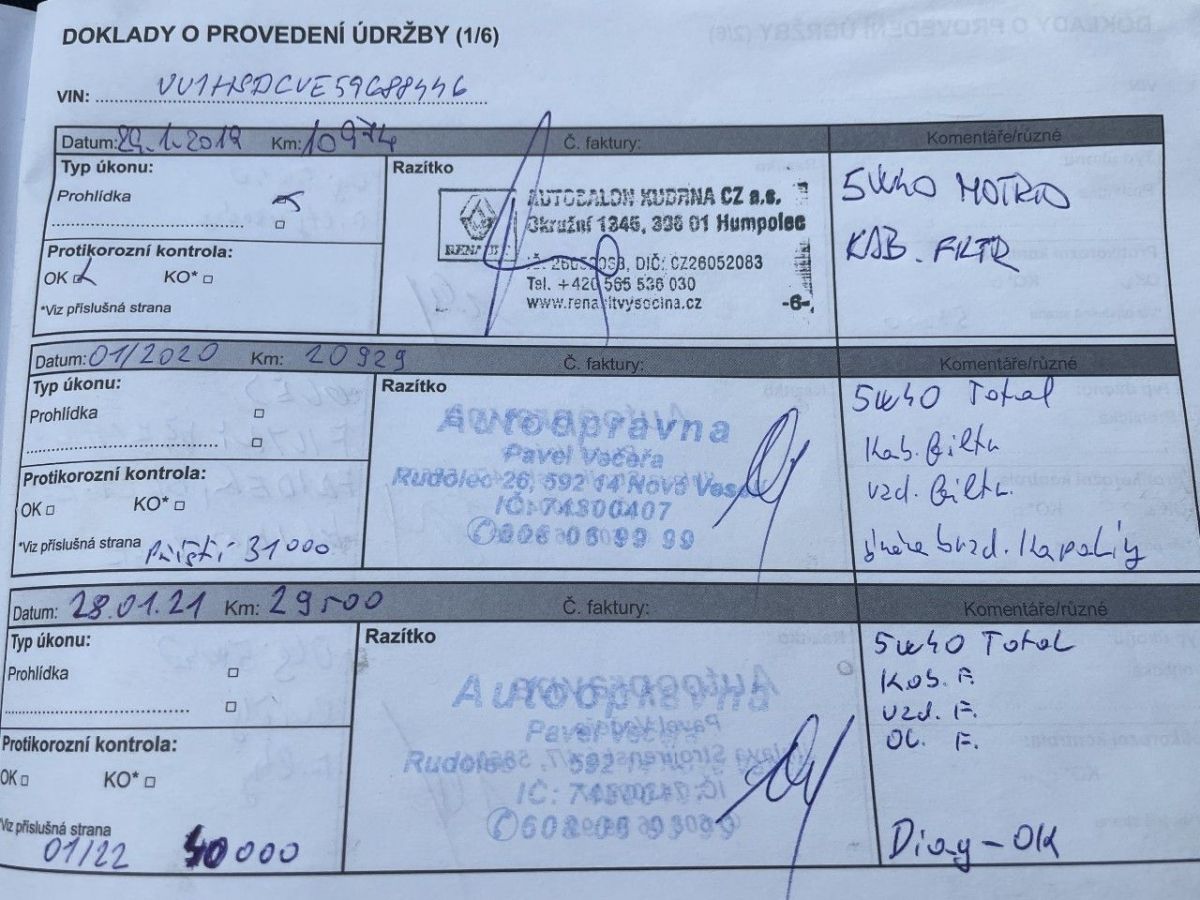 DOKLADY O PROVEDENÍ ÚDRŽBY (1/6)
VIN: VU1HSDCVE59688446
Datum: 29.1.2019 Km: 10974 Č. faktury: Komentáře/různé
Typ úkonu:
Prohlídka
Protikorozní kontrola:
OK KO*
*Viz příslušná strana
Razítko
RENAULT
AUTOSALON KUDRNA CZ a.s.
Okružní 1345, 396 01 Humpolec
DIČ: CZ26052083
Tel. +420 565 536 030
www.renaultvysocina.cz
-6-
5W40 MOTRIO
KAB. FILTR
Datum: 01/2020 Km: 20929 Č. faktury: Komentáře/různé
Typ úkonu:
Prohlídka
Protikorozní kontrola:
OK KO*
*Viz příslušná strana
Příští 31000
Razítko
Autoopravna
Pavel Večeřa
Rudolec 26, 592 14 Nové Veselí
IČ: 74300407
5W40 Total
Kab. filtr
vzd. filtr.
brzd. Kapaliny
Datum: 28.01.21 Km: 29500 Č. faktury: Komentáře/různé
Typ úkonu:
Prohlídka
Protikorozní kontrola:
OK KO*
*Viz příslušná strana
01/22 40000
Razítko
Autoopravna
Pavel Večeřa
Rudolec 592
IČ:
5W40 Total
Kab. F.
vzd. F.
Ol. F.
Diag - OK